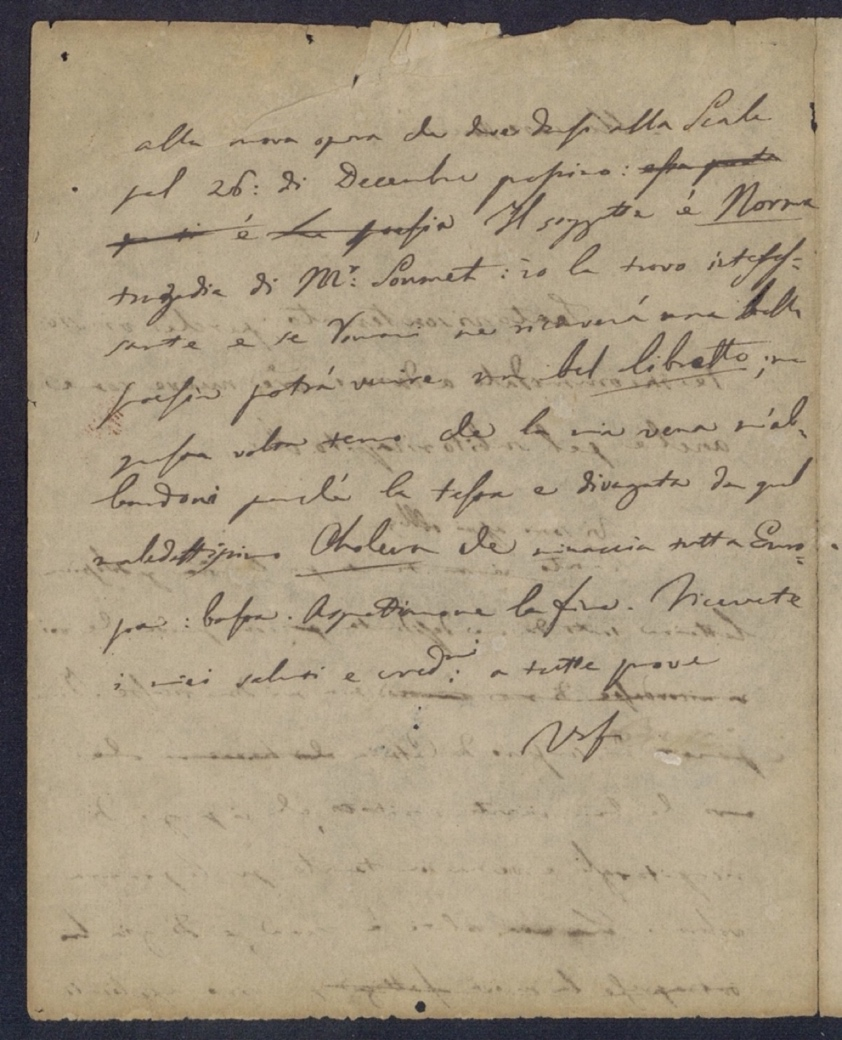 alla nova opera che deve darsi alla Scala
pel 26: di Decembre prossimo: essa
é La poesia Il soggetto é Norma
tragedia di Mr: Soumet: io la trovo interes=
sante e se Romani ne ricaverá una bella
poesia potrá venire un bel libretto; ma
questa volta temo che la mia vena m'ab,
bandoni perché la testa e divagata da quel
maledettissimo Cholera che minaccia tutta Euro=
pa: basta. Aspettiamone la fine. Ricevete
i miei saluti e cred.mi: a tutte prove